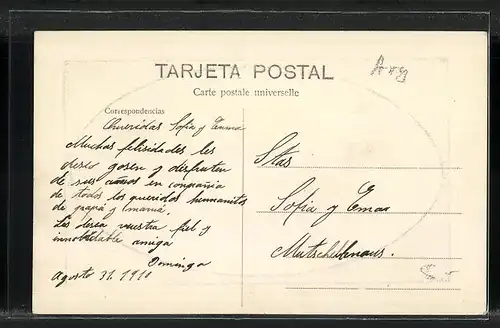 TARJETA POSTAL
Carte postale universelle
Correspondencias
Queridas Sofia y Emma
Muchas felisidades les
deseo gosen y disfruten
de sus en compañia
de todos los queridos humanitos
de papá y mamá,
Les desea vuestra fiel y
innobidable amiga
Dominga
Agosto 31. 1910
Stas
Sofia y Emma